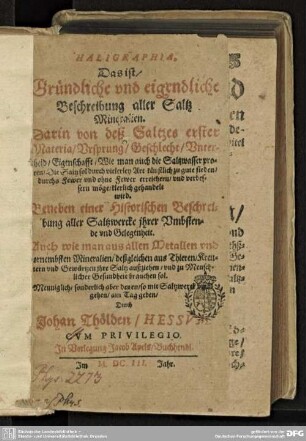 HALIGRAPHIA,
Das ist/
Gründliche vnd eigendliche
Beschreibung aller Saltz
Mineralien.
Darin von deß Saltzes erster
Materia/ Vrsprung/ Geschlecht/ Vnter-
scheid/ Eigenschafft/ Wie man auch die Saltzwasser pro-
durchs Fewer vnd ohne Fewer
wird.
Beneben einer Historischen Beschrei-
bung aller Saltzwercke ihrer Vmbsten-
de vnd Gelegenheit.
Auch wie man aus allen Metallen vnd
vornembsten Mineralien/ deßgleichen aus Thieren/ Kreu-
tern vnd Gewürtzen ihre Saltz außziehen/ vnd zu Mensch-
licher Gesundheit brauchen sol.
Menniglich/ sonderlich aber denen/ so mit Saltzwerck
gehen/ am Tag geben/
Durch
Johan Thölden/ HESSVM.
CVM PRIVILEGIO.
In Verlegung Jacob Apels/ Buchhendl.
Im M. DC. III. Jahr.
2273